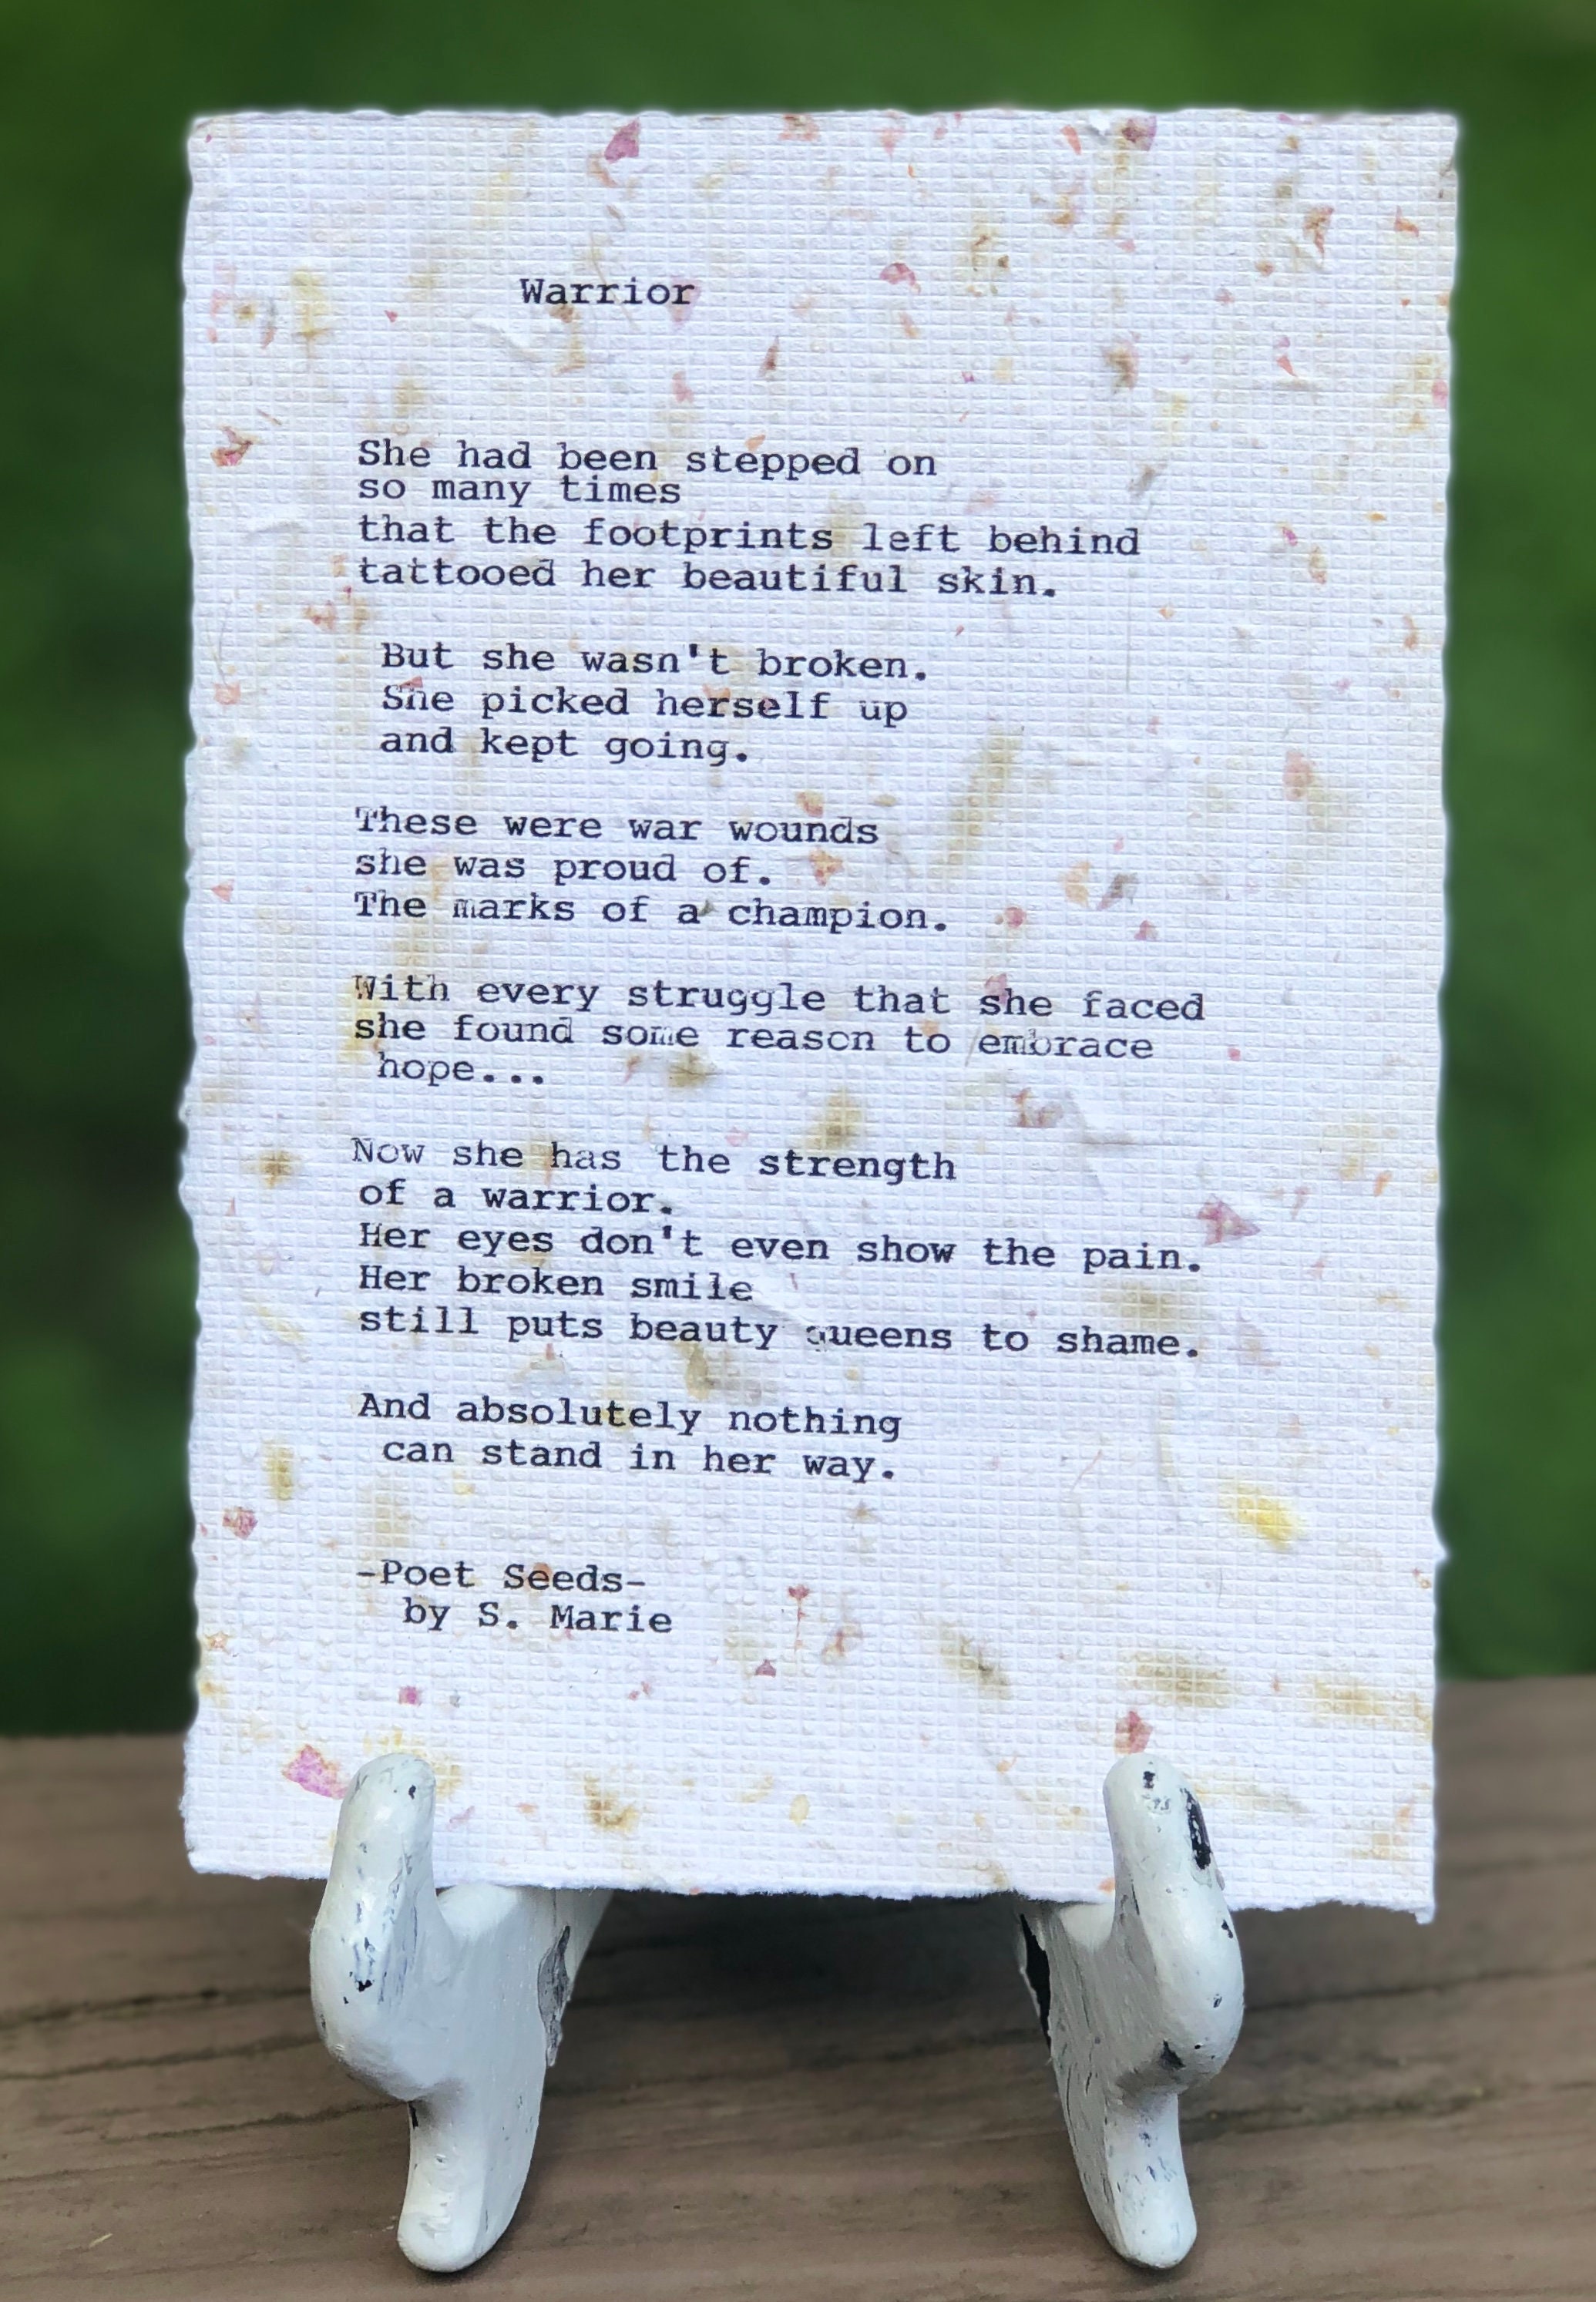 Warrior
She had been stepped on
so many times
that the footprints left behind
tattooed her beautiful skin.
But she wasn't broken.
She picked herself up
and kept going.
These were war wounds
she was proud of.
The marks of a champion.
With every struggle that she faced
she found some reason to embrace
hope...
Now she has the strength
of a warrior.
Her eyes don't even show the pain.
Her broken smile
still puts beauty queens to shame.
And absolutely nothing
can stand in her way.
-Poet Seeds-
by S. Marie